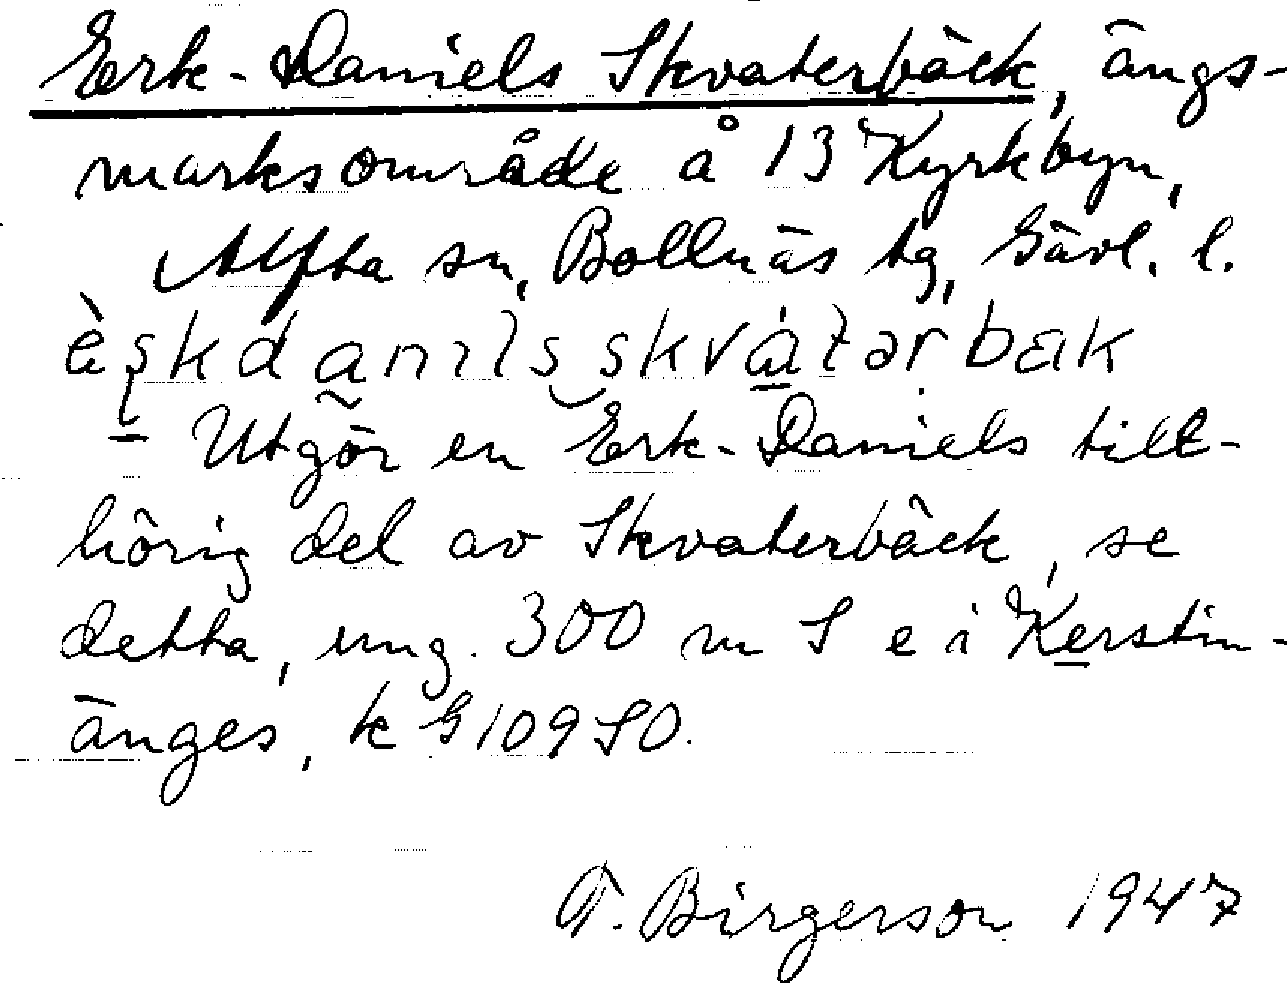 Erk-Daniels Skvaterbäck, ängs-
marksområde å 13 Kyrkbyn,
Alfta sn, Bollnäs tg, Gävl. l.
Utgör en Erk-Daniels till-
hörig del av Skvaterbäck, se
detta, ung. 300 m S e i Kerstin-
änges, k G109SO.
T. Birgerson 1947